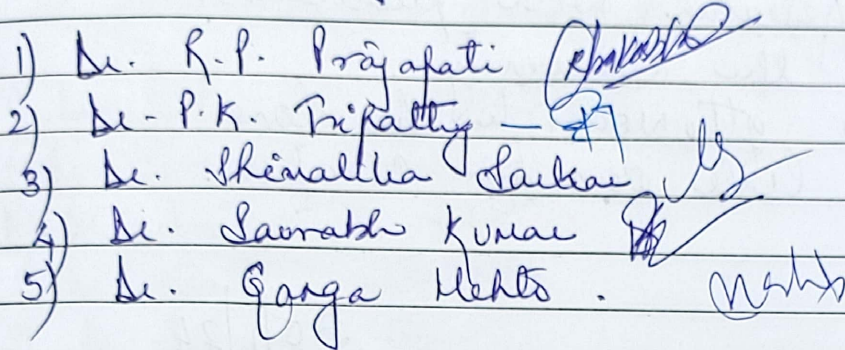 1) Dr. R.P. Prajapati
2) Dr - P.K Tripathy -
3) Dr. Sarkar
4) Dr. Saurabh Kumar
5) Dr. Ganga Mehto .